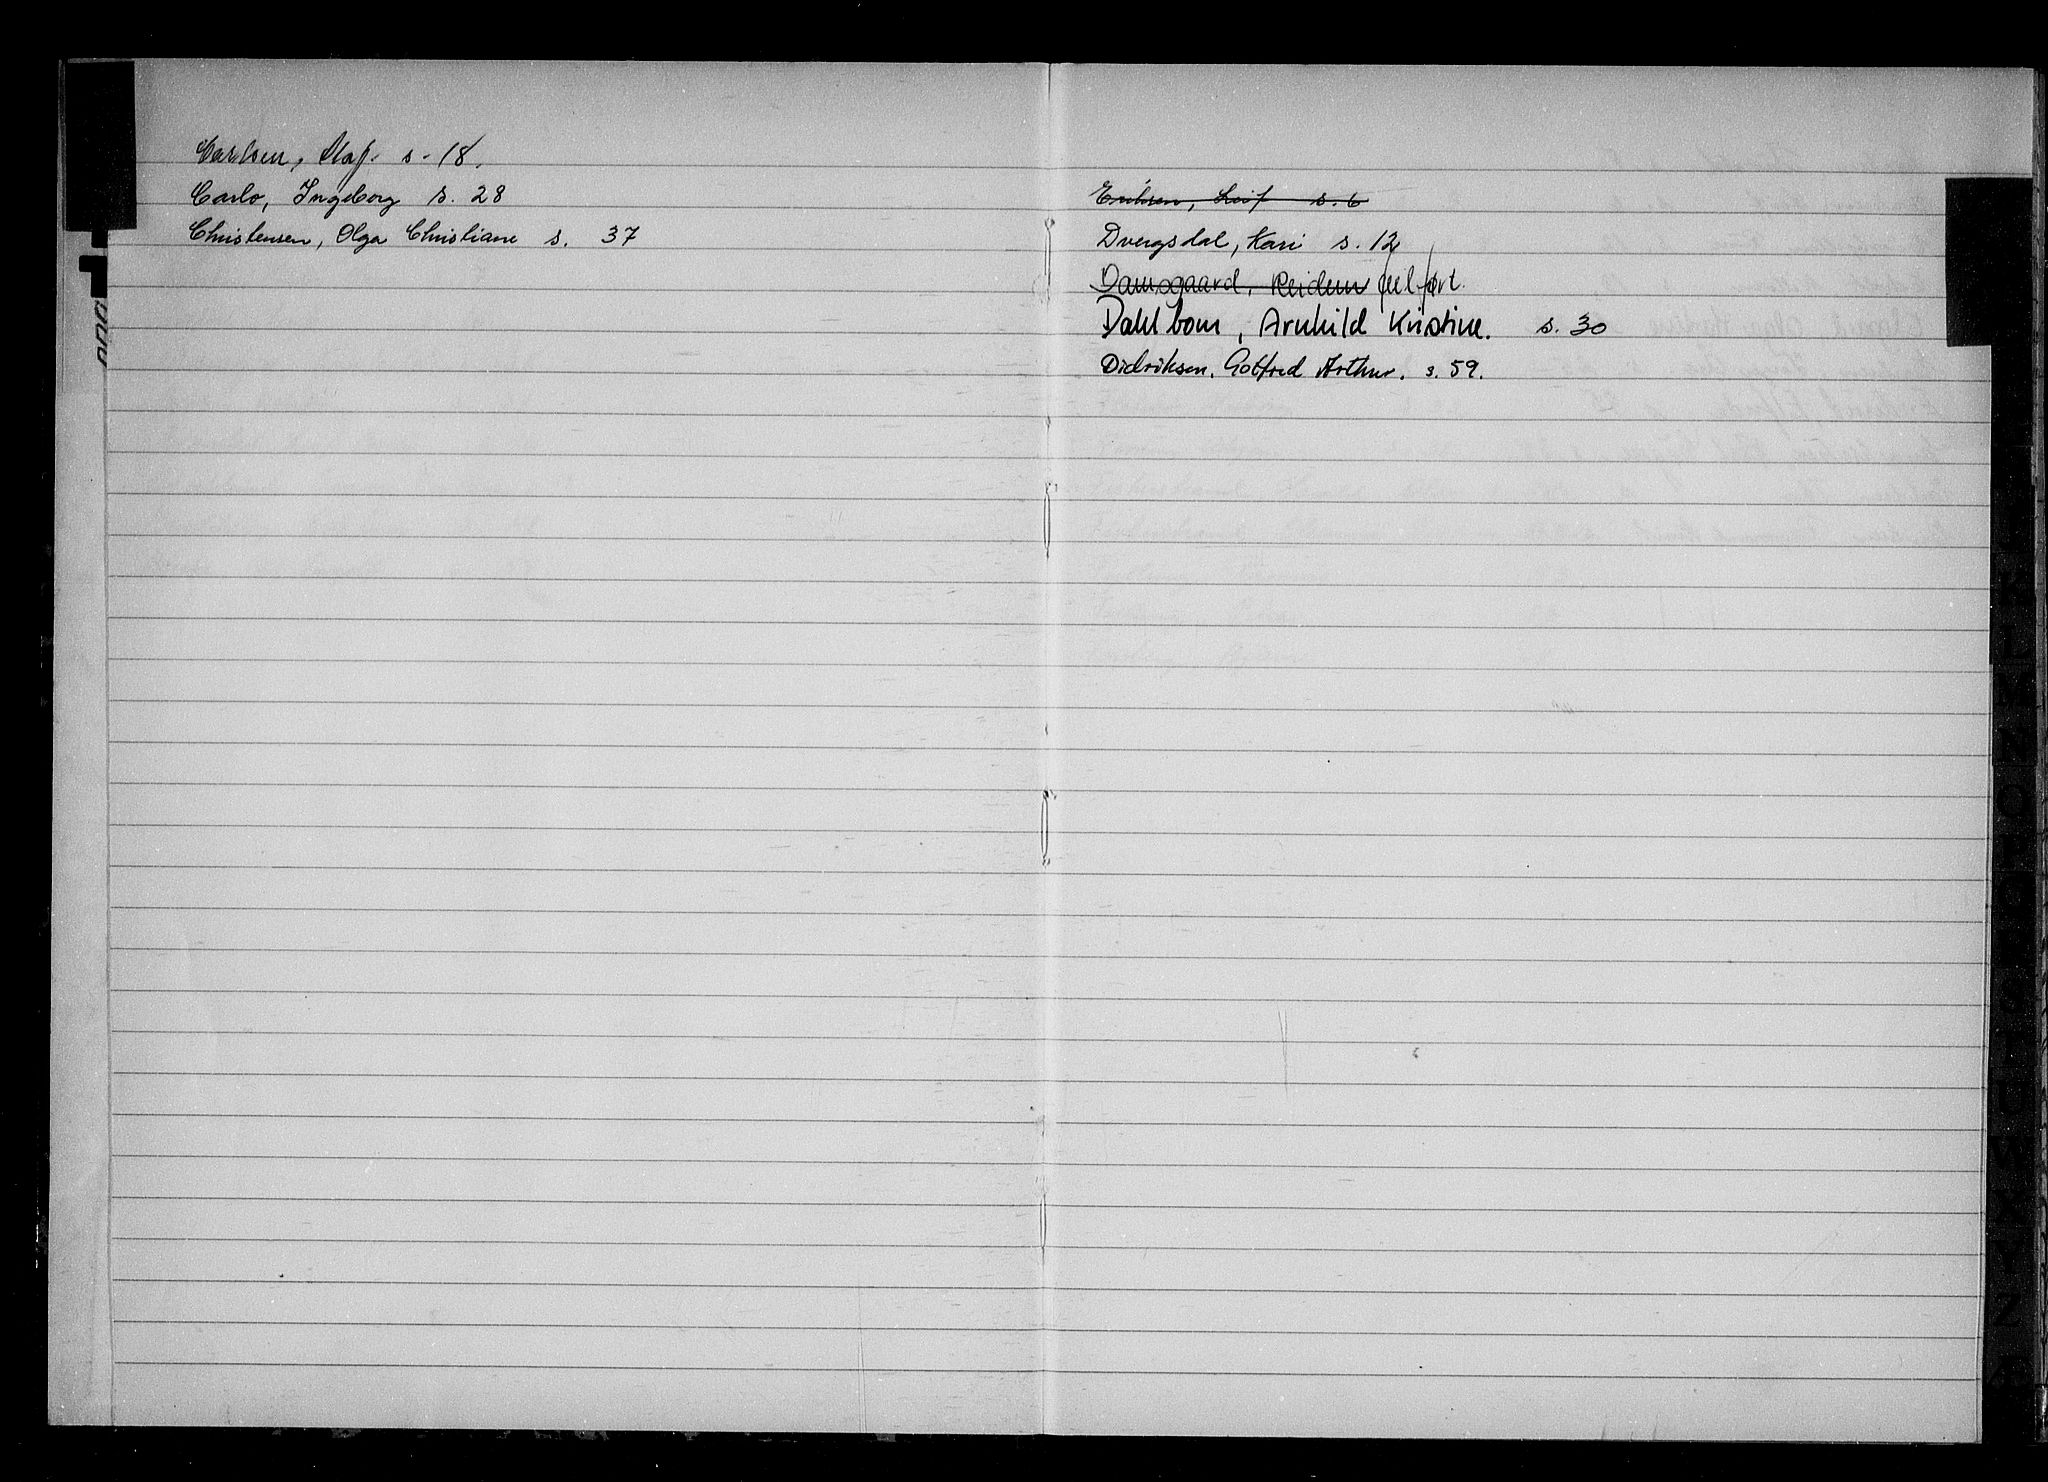 Carlsen, Olaf. s. 18.
Carlo, Ingeborg s. 28
Christensen, Olga Christiane s. 37
Eriksen, Leif s. 6
Dvergsdal, Kari s. 12
Damsgaard, Reidun feilført.
Dahlbom, Arnhild Kristine. s. 30
Didriksen, Gotfred Arthur. s. 59.